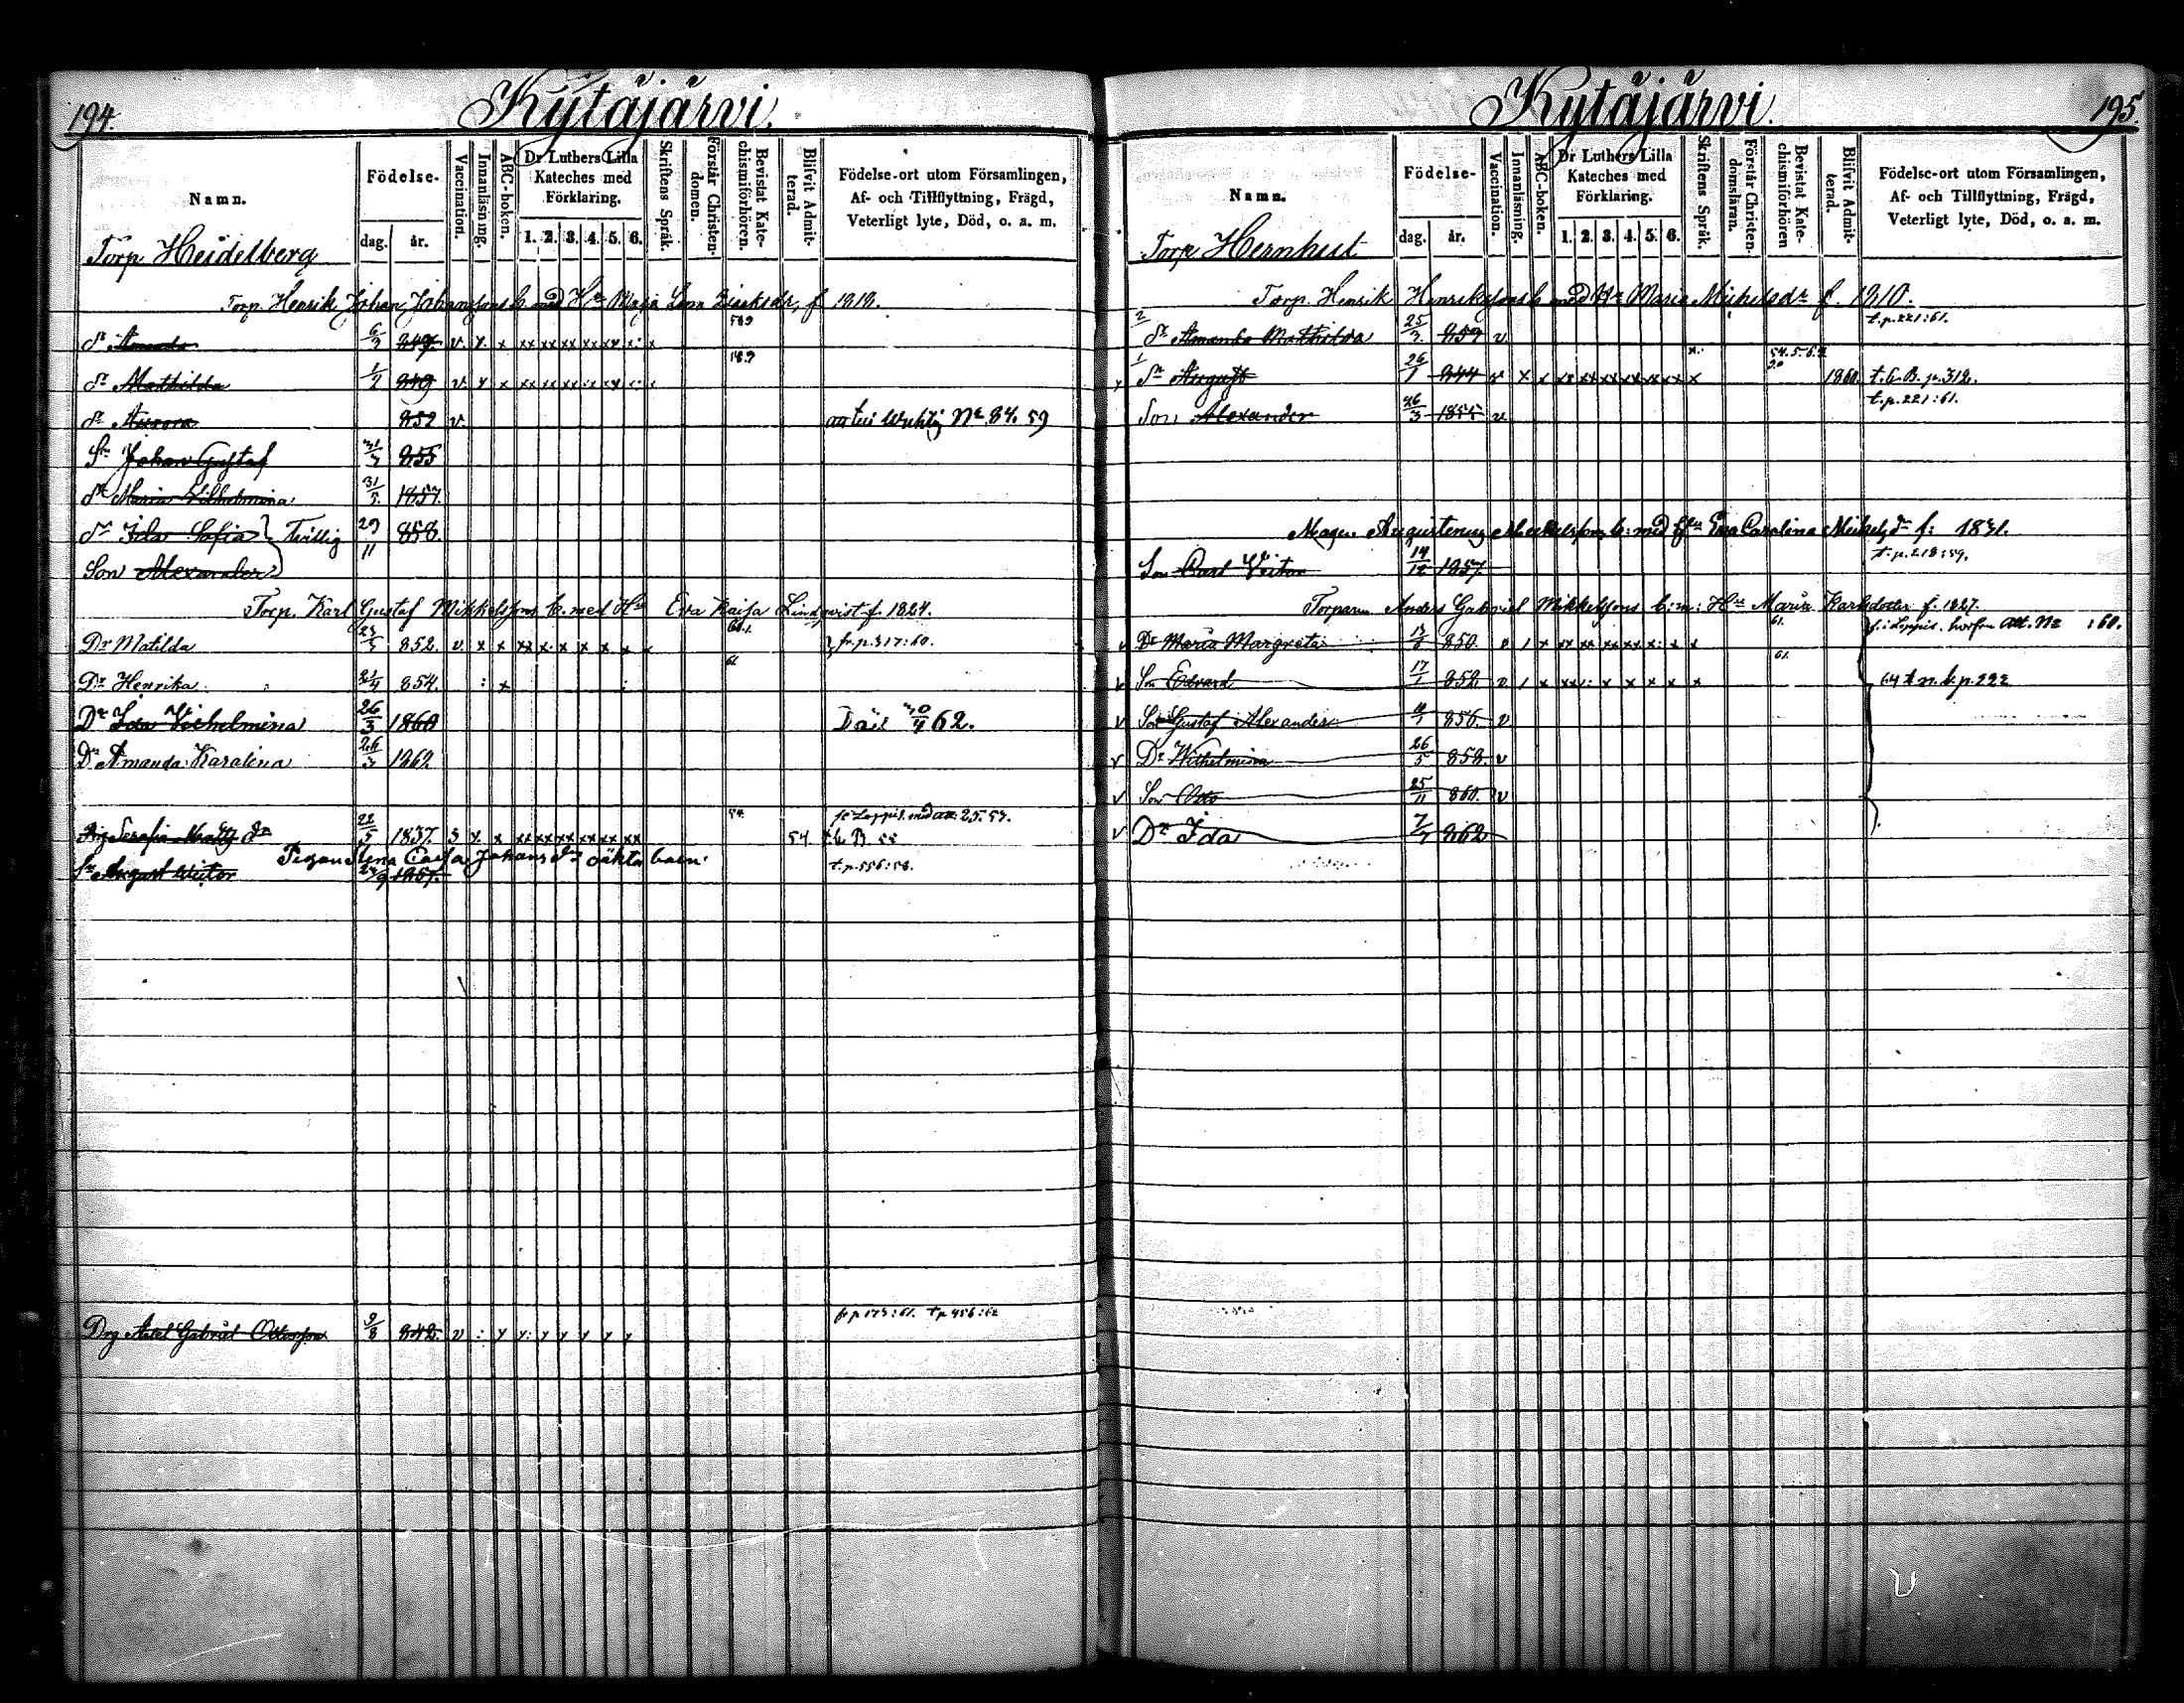 194.
Kytäjärvi.
Namn.
Födelse-
dag.
år.
Vaccination.
Innanläsning.
ABC-boken.
Dr Luthers Lilla
Kateches med
Förklaring.
1. 2. 3. 4. 5. 6.
Skriftens Språk.
Förstår Christen-
domen.
Bevistat Kate-
chismiförhören.
Blifvit Admit-
terad.
Födelse-ort utom Församlingen,
Af- och Tillflyttning, Frägd,
Veterligt lyte, Död, o. a. m.
Torp Heidelberg
Torp. Henrik Johan Johanssons b. med Hu Maja Lena f. 1819.
Dr Amanda 6/3 847 v. x x xx xx xx xx
Dr Mathilda 1/2 849 v. x x xx xx xx
Dr Aurora 852 v. No 84. 59
Sn Johan Gustaf 31/3 855
Dr Maria Wilhelmina 31/5 1857
Dr Ida Sofia } Tvillig 29/11 858
Son Alexander
Torp. Karl Gustaf Mikkelssons b. med Hu Eva Kaisa Lindqvist f. 1824.
Dr Matilda 852. v. x x xx x. x x x x fr. p. 317:60.
61
Dr Henrika 854. : x
Dr Ida Vilhelmina 26/3 1860 62.
Dr Amanda Karalina 26/3 1862
Serafia 22/5 1837. x. x xx xx xx xx xx xx 54
Pigan Lena Caisa Johans dr oäkta barn.
Sn August Victor 1857. t. p. 556:58.
Drg Axel Gabriel Ottosson 9/8 842. v : y y: y y y y y fr p 173:61. t p 456:62
195.
Kytäjärvi.
Namn.
Födelse-
dag.
år.
Vaccination.
Innanläsning.
ABC-boken.
Dr Luthers Lilla
Kateches med
Förklaring.
1. 2. 3. 4. 5. 6.
Skriftens Språk.
Förstår Christen-
domsläran.
Bevistat Kate-
chismiförhören
Blifvit Admit-
terad.
Födelse-ort utom Församlingen,
Af- och Tillflyttning, Frägd,
Veterligt lyte, Död, o. a. m.
Torp Hernhut
Torp. Henrik Henrikssons b med Hu Maria Michelsdr f. 1810.
2 Dr Amanda Mathilda 25/3 859 v t. p. 221:61.
1 Sn August 26/1 844 v x x xx xx xx xx xx xx x 1860. t. C. B. p. 312.
Son Alexander 26/3 1855 v. t. p. 221:61.
b: med Eva Carolina f: 1831.
Son Carl Victor 14/12 1857 t. p. 218:59.
Torparen Anders Gabriel Mikkelssons b: m: Hu Maria Karlsdotter f. 1827.
v Dr Maria Margreta 850. v 1 x xx xx xx xx x: x x 61. f. i Loppis. Att. No :60.
v Son Edvard 17/1 852 v 1 x xx: x x x x x 61. p. 222
v Son Gustaf Alexander 856. v
v Dr Wilhelmina 26/5 858. v
v Son Otto 25/11 860. v
v Dr Ida 7/7 862